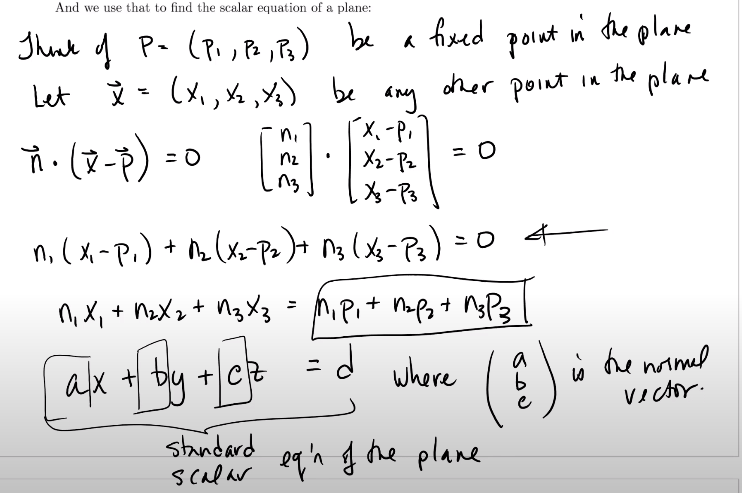 And we use that to find the scalar equation of a plane:
Think of P = (P₁, P₂, P₃) be a fixed point in the plane
Let x⃗ = (x₁, x₂, x₃) be any other point in the plane
n⃗ · (x⃗ - p⃗) = 0 [n₁ n₂ n₃] · [x₁-P₁ x₂-P₂ x₃-P₃] = 0
n₁(x₁-P₁) + n₂(x₂-P₂) + n₃(x₃-P₃) = 0 ←
n₁x₁ + n₂x₂ + n₃x₃ = n₁P₁ + n₂P₂ + n₃P₃
ax + by + cz = d where (a b c) is the normal vector.
standard scalar eq'n of the plane